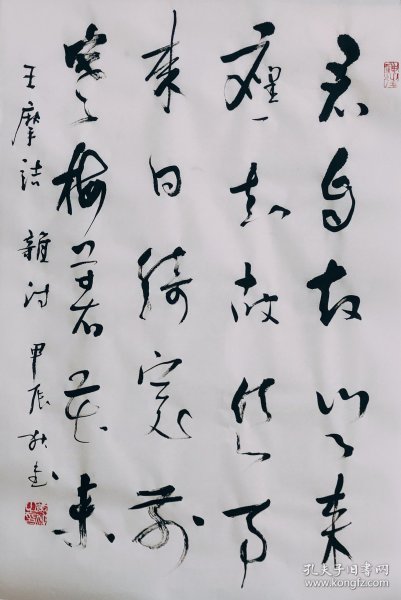 君自故鄉来
應知故鄉事
来日綺窗前
寒梅著花未
王摩詰 雜詩 甲辰秋
孔夫子旧书网
www.kongfz.com